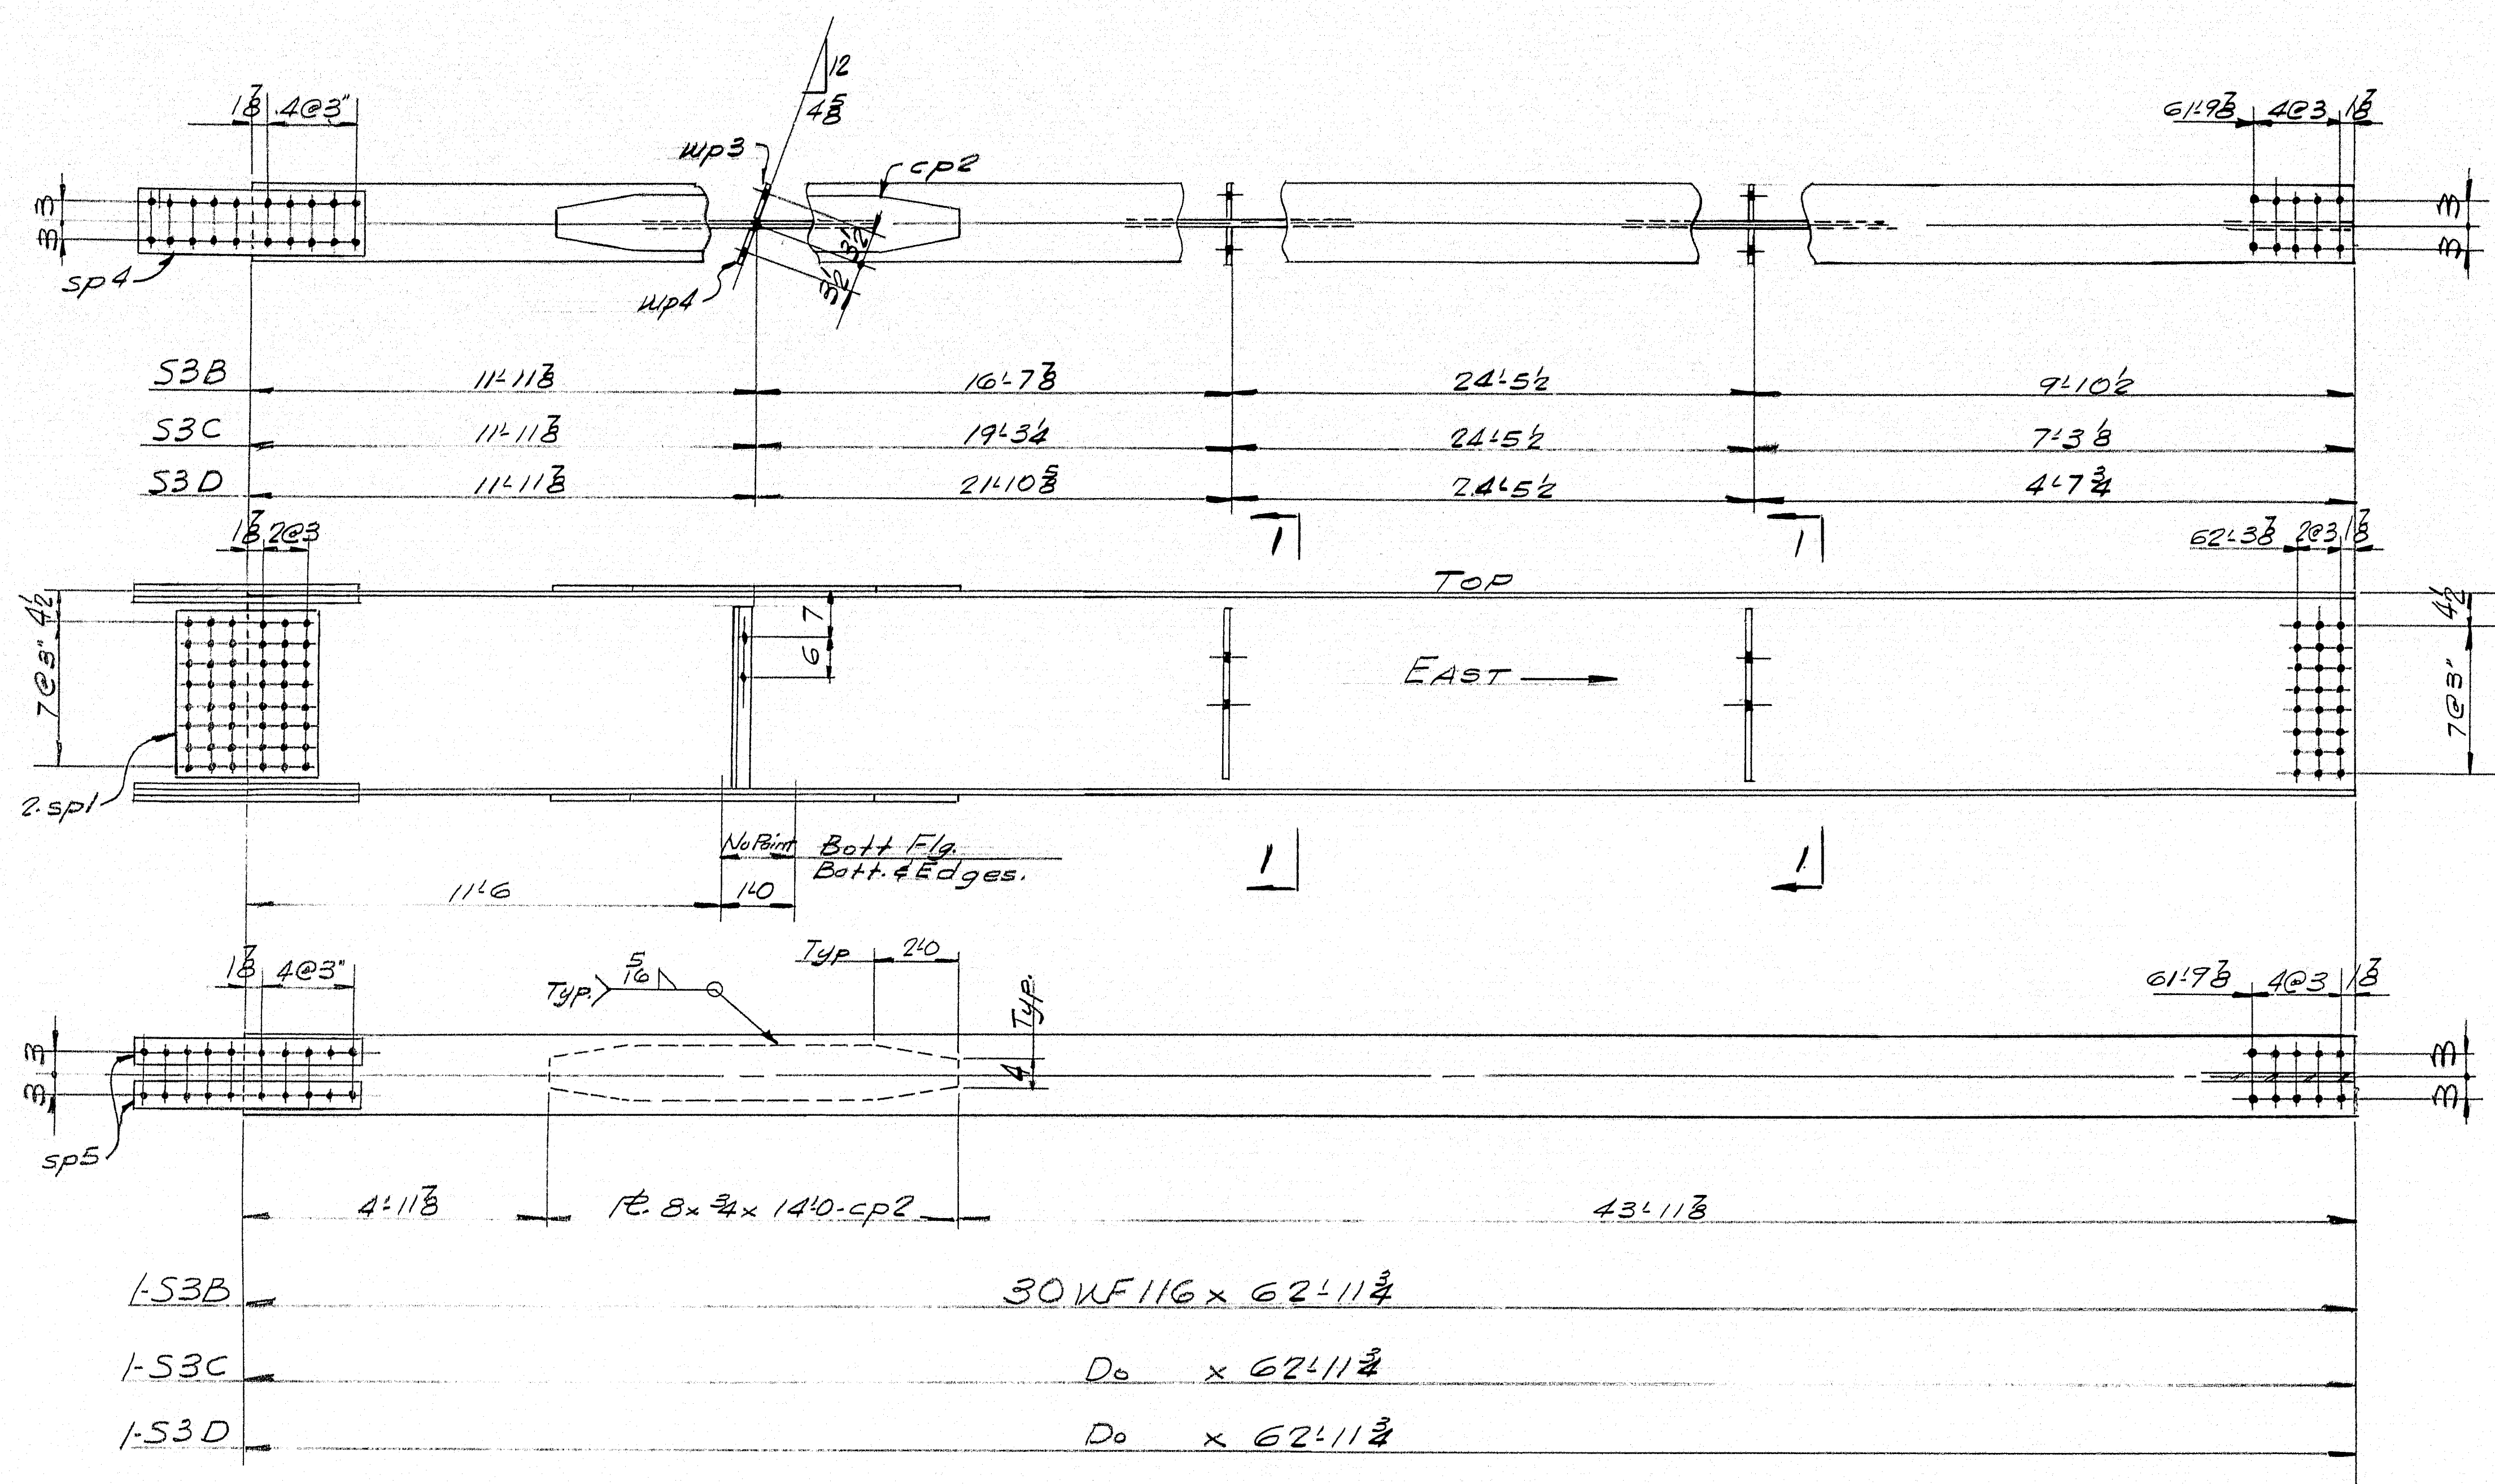 12
4 5/8
1 7/8 4@3"
61'-9 7/8 4@3 1 7/8
wp3
cp2
3
3
3 1/2
3 1/2
3
3
sp4
wp4
S3B 11'-11 7/8 16'-7 7/8 24'-5 1/2 9'-10 1/2
S3C 11'-11 7/8 19'-3 1/4 24'-5 1/2 7'-3 1/8
S3D 11'-11 7/8 21'-10 5/8 24'-5 1/2 4'-7 3/4
1 7/8 2@3
1 1
62'-3 7/8 2@3 1 7/8
TOP
4 1/2
7
6
4 1/2
EAST
7@3"
7@3"
2-sp1
No Paint Bott Flg.
Bott. & Edges.
1 1
11'-6 1'-0
Typ 2'-0
1 7/8 4@3"
Typ. 5/16
Typ.
61'-9 7/8 4@3 1 7/8
3
3
4
3
3
sp5
4'-11 7/8 PL 8 x 3/4 x 14'-0-cp2 43'-11 7/8
1-S3B 30 WF 116 x 62'-11 3/4
1-S3C Do x 62'-11 3/4
1-S3D Do x 62'-11 3/4